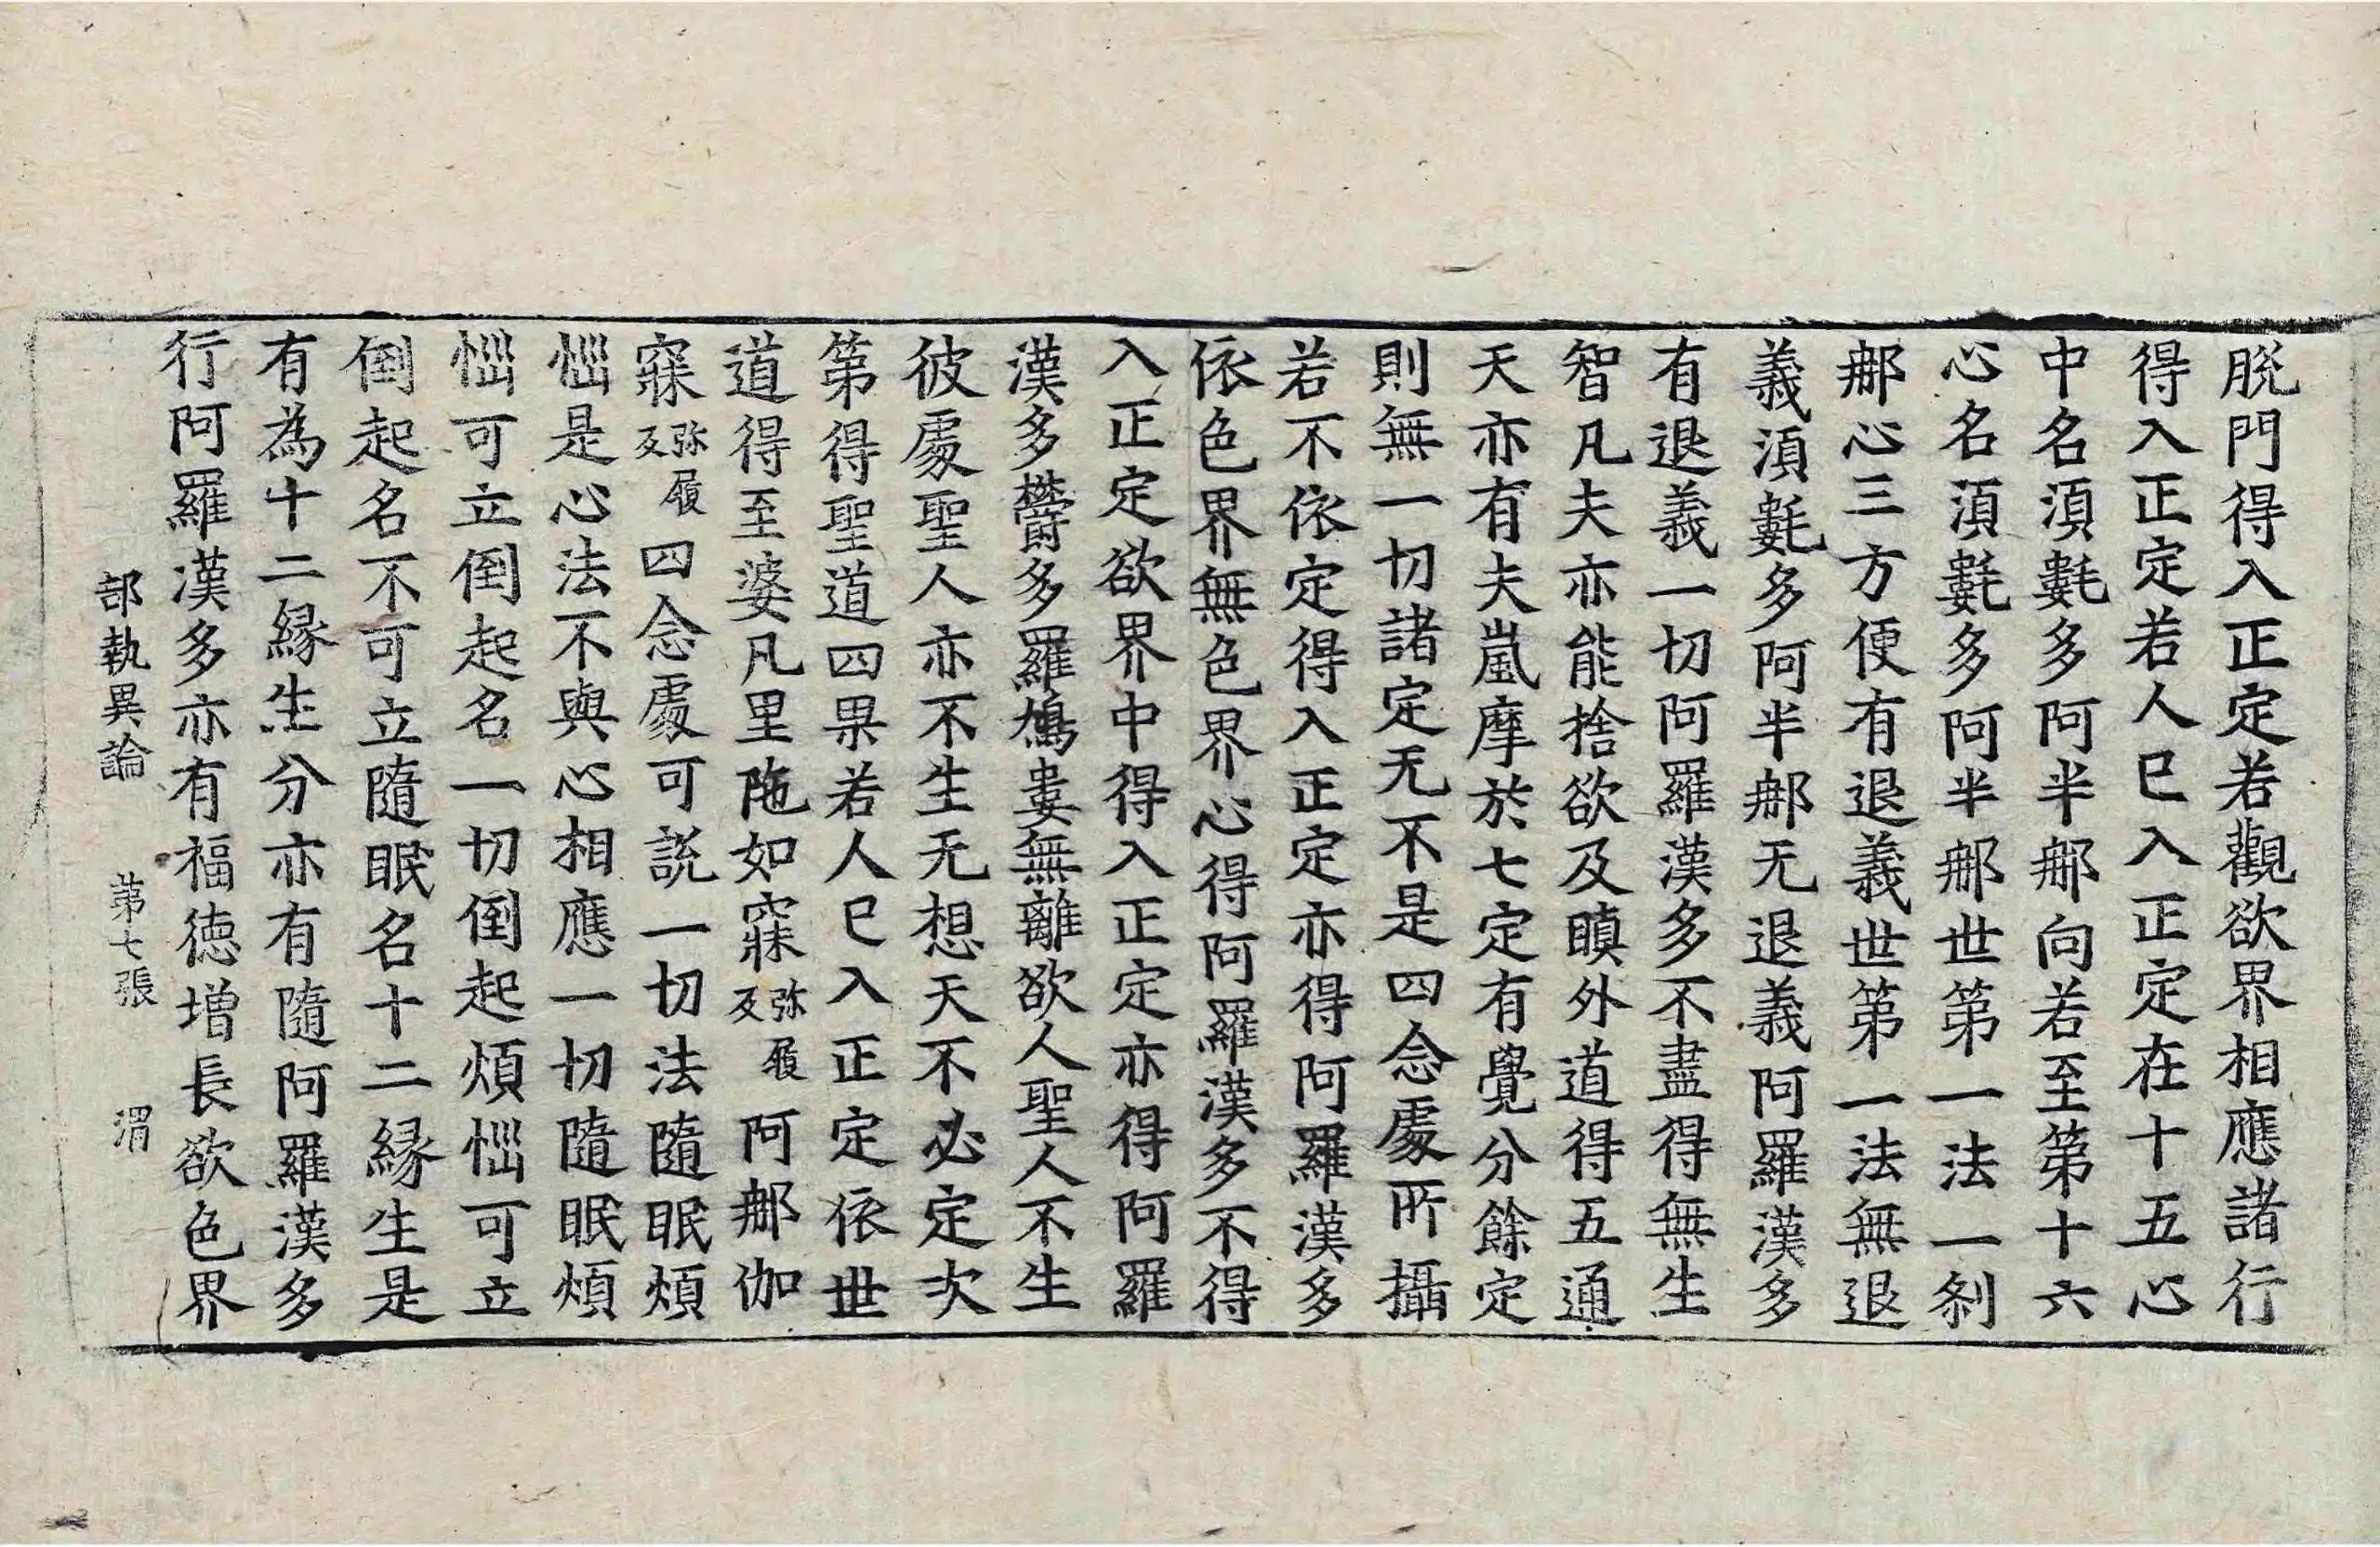 脫門得入正定若觀欲界相應諸行
得入正定若人已入正定在十五心
中名湏㲉多阿半𨚗向若至第十六
心名湏㲉多阿半𨚗世第一法一刹
𨚗心三方便有退義世第一法無退
義湏㲉多阿半𨚗无退義阿羅漢多
有退義一切阿羅漢多不盡得無生
智凡夫亦能捨欲及瞋外道得五通
天亦有夫嵐摩於七定有覺分餘定
則無一切諸定无不是四念處所攝
若不依定得入正定亦得阿羅漢多
依色界無色界心得阿羅漢多不得
入正定欲界中得入正定亦得阿羅
漢多欝多羅鳩婁無離欲人聖人不生
彼處聖人亦不生无想天不必定次
第得聖道四果若人已入正定依世
道得至婆凡里陁如寐弥履反阿𨚗伽
寐弥履反四念處可說一切法隨眠煩
惱是心法不與心相應一切隨眠煩
惱可立倒起名一切倒起煩惱可立
倒起名不可立隨眠名十二緣生是
有為十二緣生分亦有隨阿羅漢多
行阿羅漢多亦有福德增長欲色界
部執異論 第七張 渭